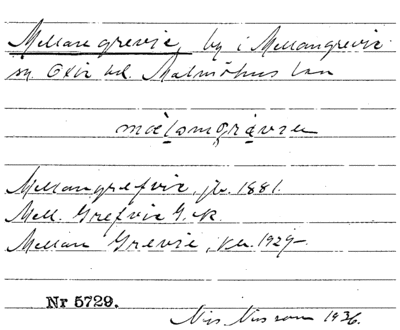 Mellan grevie, by i Mellangrevie
sn Oxie hd. Malmöhus län
Mellangrefvie, jb. 1881.
Mell. Grefvie G. K
Mellan Grevie, 1929
Nr 5729.
Nils Nilsson 1936.